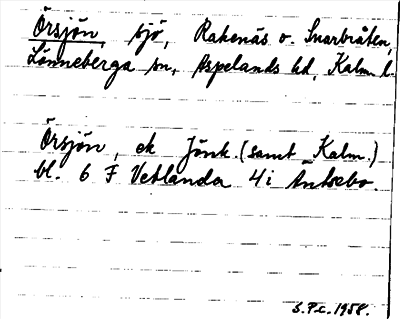 Örsjön, sjö, Rakenäs o. Snarbråten,
Lönneberga sn, Aspelands hd, Kalm. l.
Örsjön, ek Jönk. (samt Kalm.)
bl. 6 F Vetlanda 4i
S.P.C. 1958.